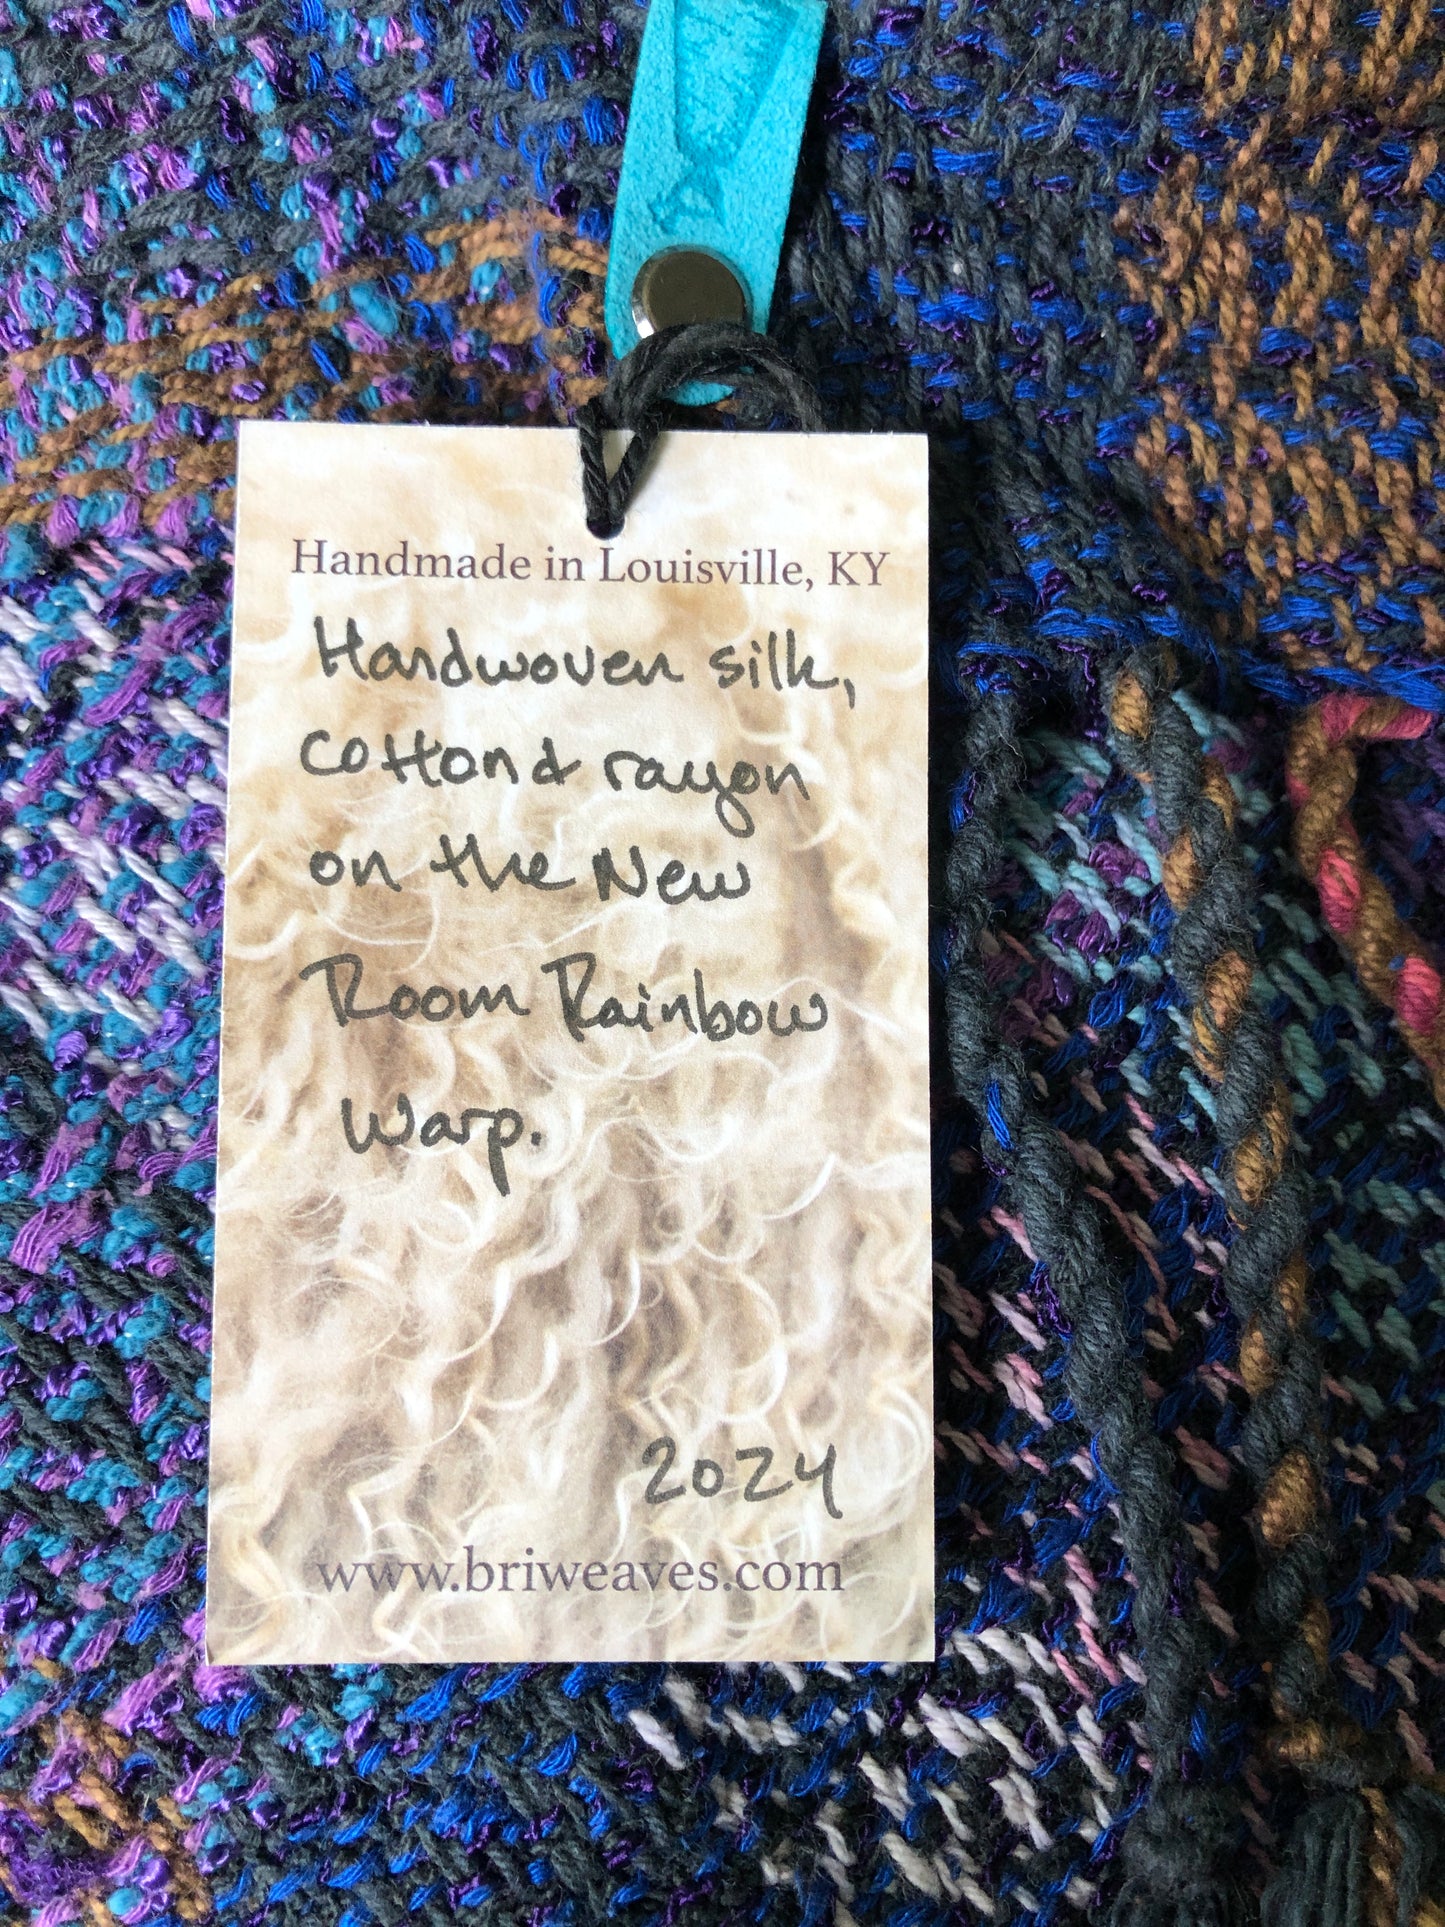 Handmade in Louisville, KY
Handwoven silk,
cotton & rayon
on the New
Room Rainbow
warp.
2024
www.briweaves.com